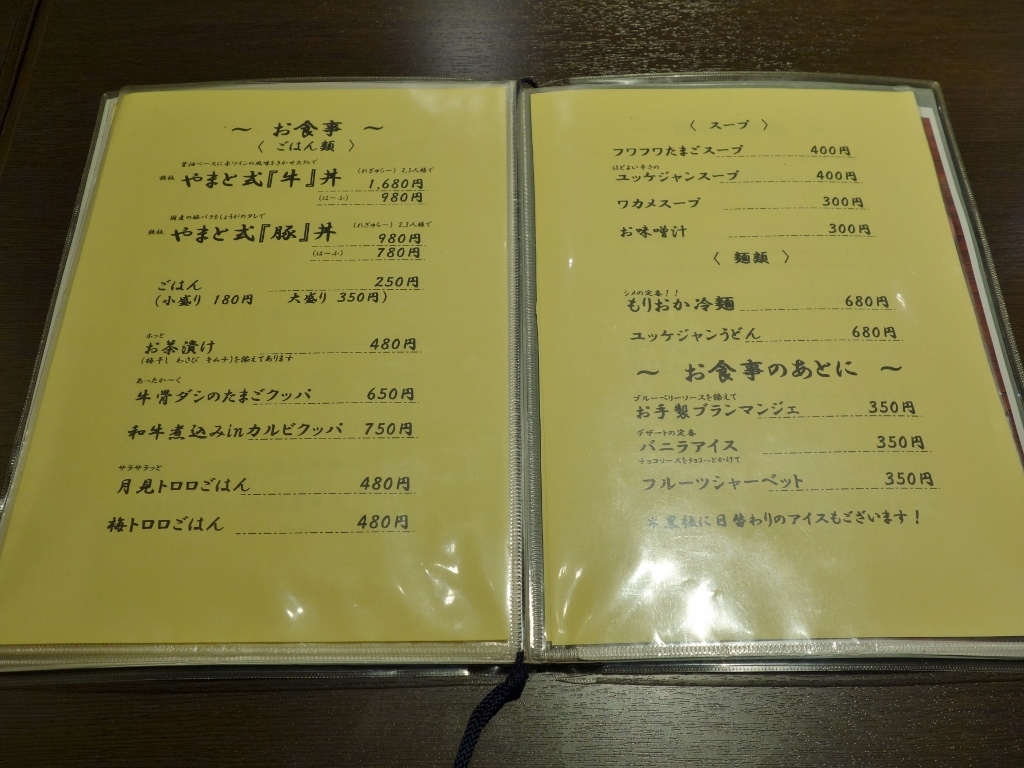 ～ お食事 ～
〈 ごはん類 〉
醤油ベースに赤ワインの風味をきかせたタレで
鉄板 やまと式『牛』丼 (れぎゅらー) 2,3人様で 1,680円
(はーふ) 980円
国産の豚バラをしょうがのタレで
鉄板 やまと式『豚』丼 (れぎゅらー) 2,3人様で 980円
(はーふ) 780円
ごはん 250円
(小盛り 180円 大盛り 350円)
ホッと
お茶漬け 480円
(梅干し わさび キムチ)を添えてあります
あったか～く
牛骨ダシのたまごクッパ 650円
和牛煮込みinカルビクッパ 750円
サラサラッと
月見トロロごはん 480円
梅トロロごはん 480円
〈 スープ 〉
フワフワたまごスープ 400円
ほどよい辛さの
ユッケジャンスープ 400円
ワカメスープ 300円
お味噌汁 300円
〈 麺類 〉
シメの定番！！
もりおか冷麺 680円
ユッケジャンうどん 680円
～ お食事のあとに ～
ブルーベリーソースを添えて
お手製ブランマンジェ 350円
デザートの定番
バニラアイス 350円
チョコソースをチョコっとかけて
フルーツシャーベット 350円
※黒板に日替わりのアイスもございます！